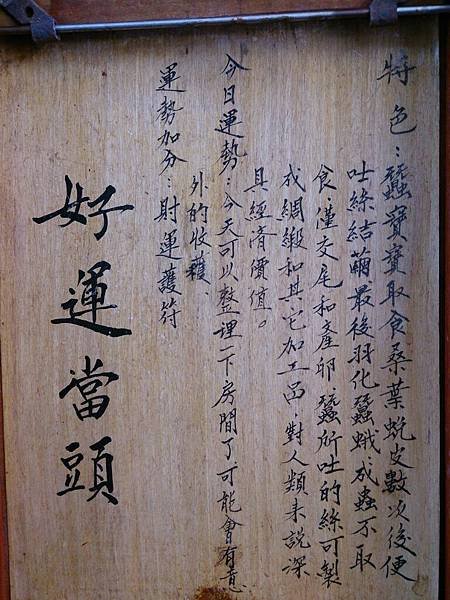 特色：蠶寶寶取食桑葉蛻皮數次後便
吐絲結繭最後羽化蠶蛾成蟲不取
食，僅交尾和產卵蠶所吐的絲可製
成綢緞和其它加工品，對人類來說深
具經濟價值。
今日運勢：今天可以整理一下房間了可能會有意
外的收穫、
運勢加分：財運護符
好運當頭